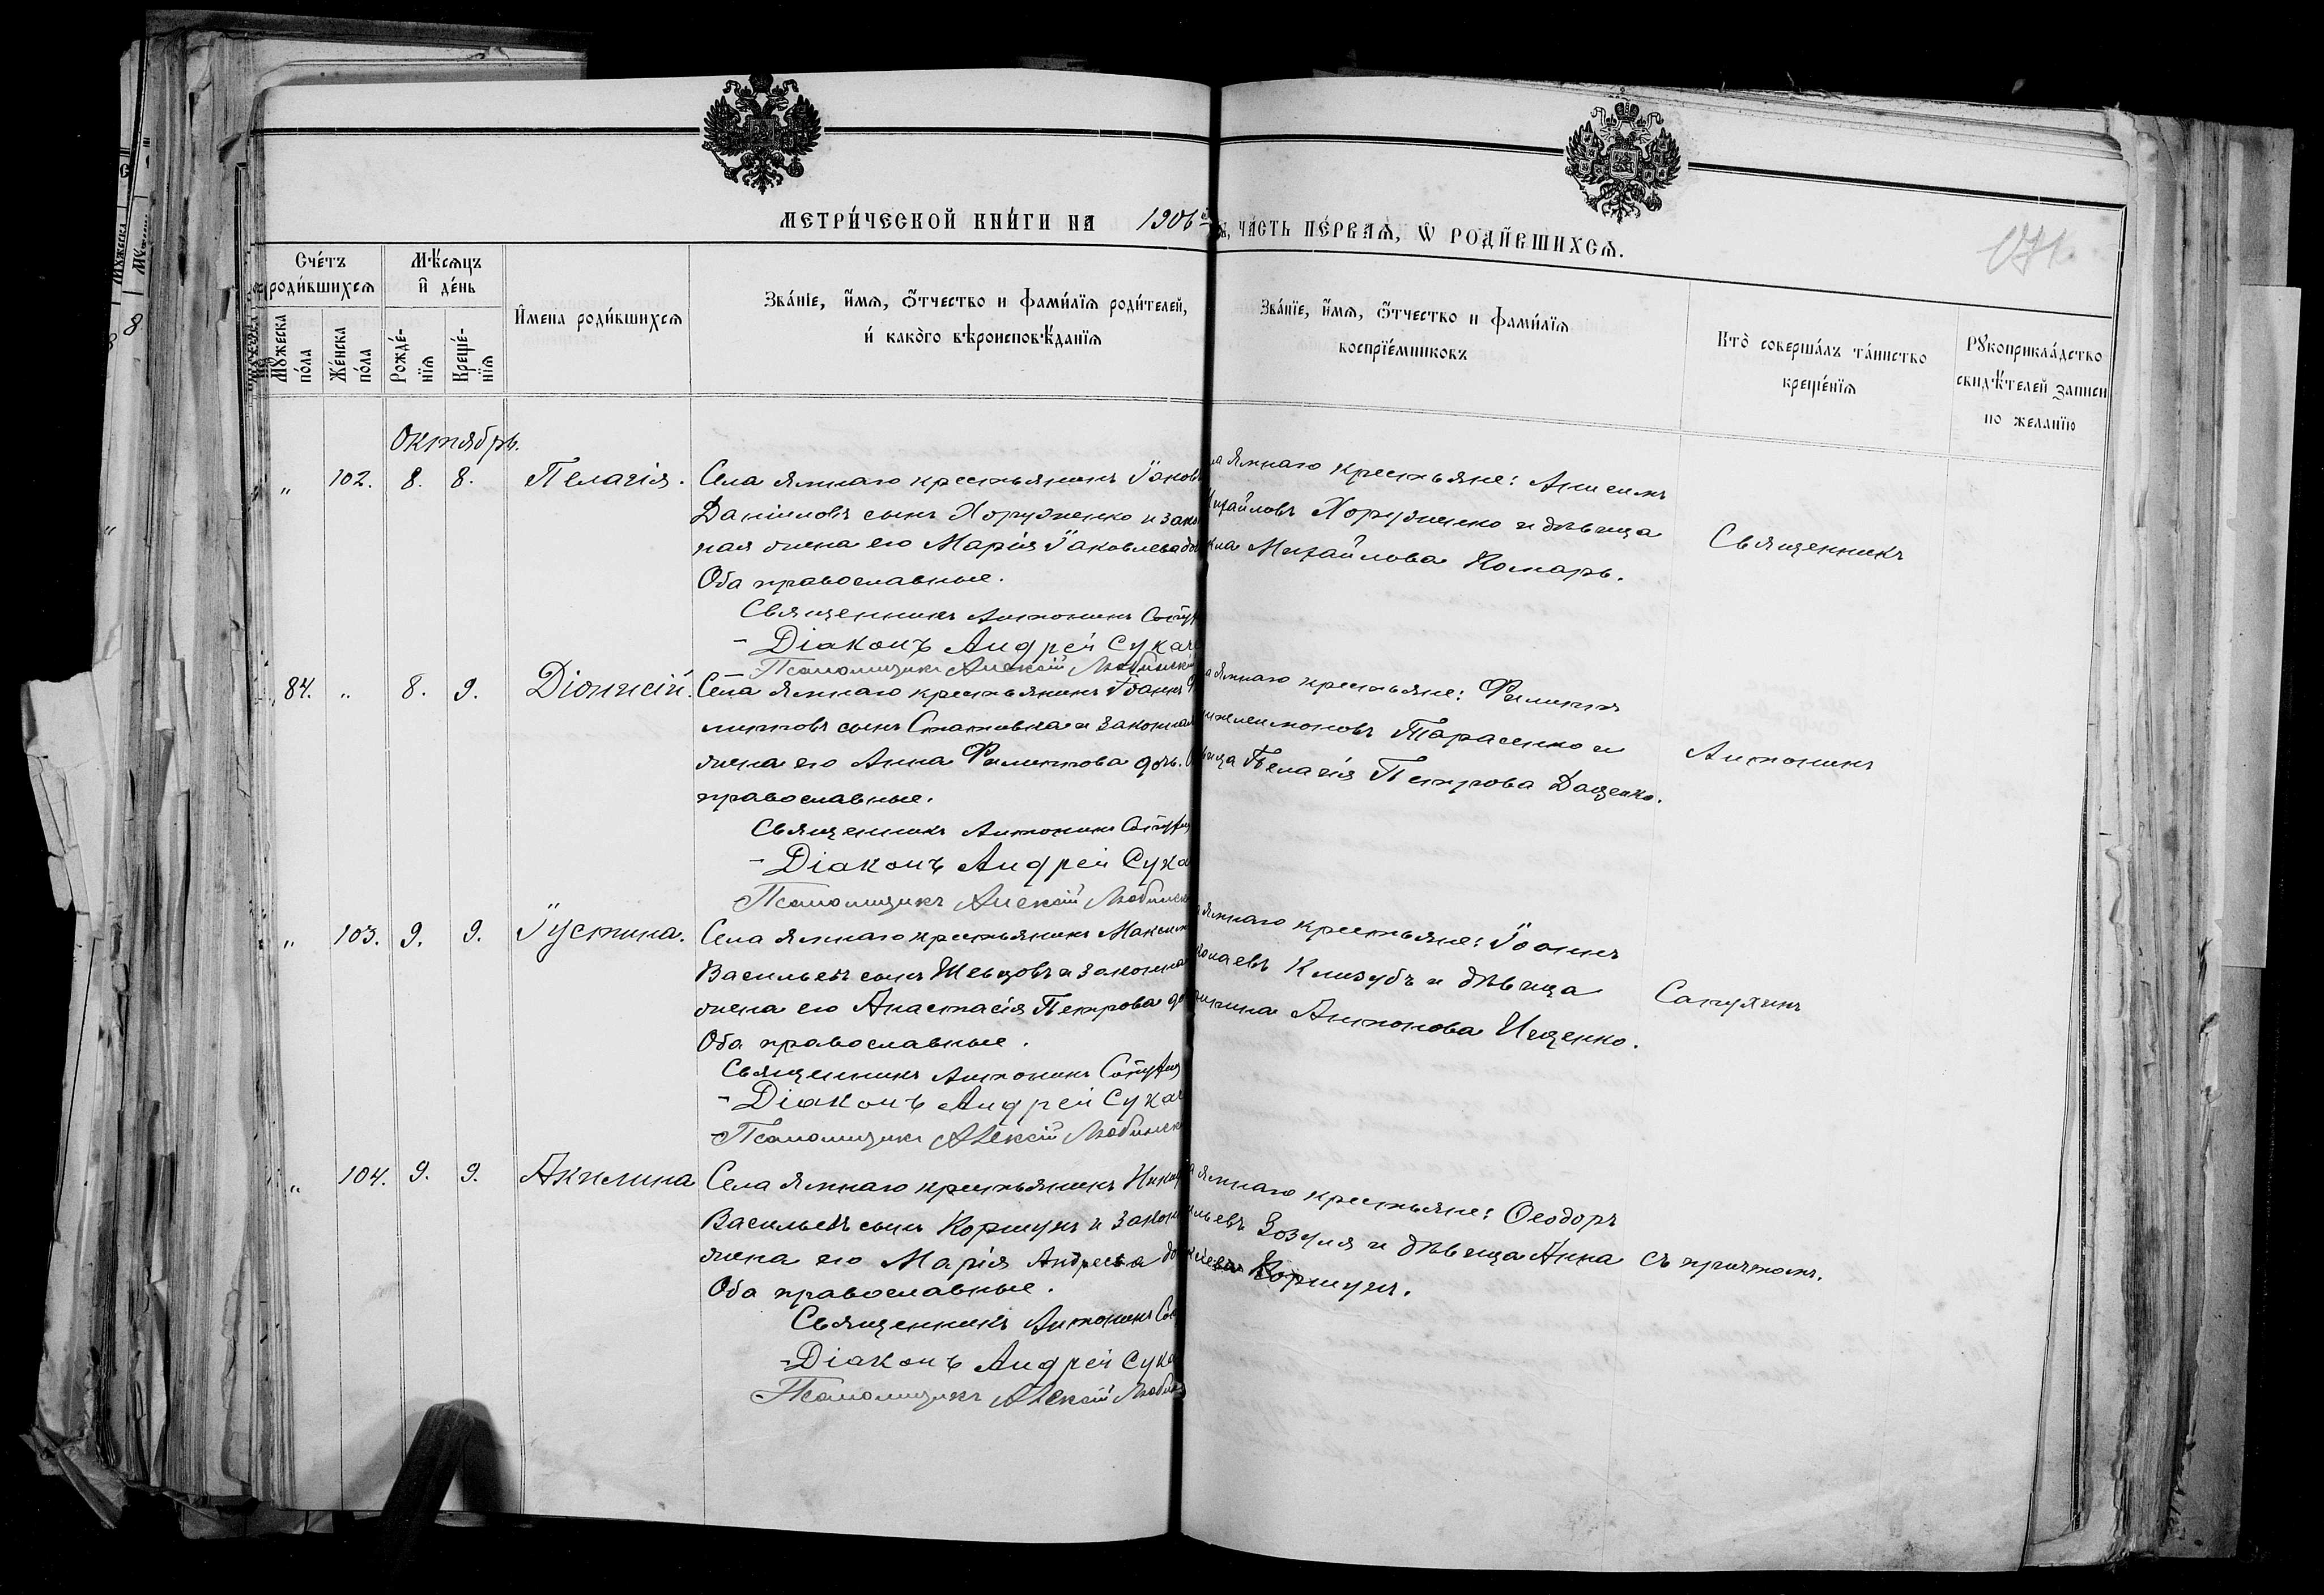 МЕТРИ́ЧЕСКОЙ КНИ́ГИ НА 1906й
ЧА́СТЬ ПЕ́РВАЯ, Ѡ РОДИ́ВШИХСЯ.
171.
Сче́тъ
роди́вшихся
Мѣ́сяцъ
и҆ де́нь
И҆мена роди́вшихся
Зва́нїе, и҆́мя, ѻ҆́тчество и фами́лїя роди́телей,
и҆ како́го вѣроисповѣ́данїя
Зва́нїе, и҆́мя, ѻ҆́тчество и фами́лїя
воспрїе́мниковъ
Кто̀ соверша́лъ та́инство
креще́нїя
Рꙋкоприкла́дство
свидѣ́телей записи
по жела́нїю
Мꙋжеска
по́ла
Же́нска
по́ла
Рожде́-
нїя
Креще́-
нїя
Октябрь.
„ 102. 8. 8. Пелагія.
Села Ямнаго крестьянинъ Іаковъ
Даніиловъ сынъ Хоружненко и зако
ная жена его Марія Іаковлева до
Оба православные.
Священникъ Антонинъ
- Діаконъ Андрей Сукач
- Псаломщикъ Алексій Любинскій
Ямнаго крестьяне: Анисимъ
Михайловъ Хоружненко и дѣвица
кла Михайлова Комарь.
Священникъ
84. „ 8. 9. Діонисій.
Села Ямнаго крестьянинъ Іоаннъ
липповъ сынъ Статывка и законная
жена его Анна Филиппова дочь.
православные.
Священникъ Антонинъ
- Діаконъ Андрей Сука
Псаломщикъ Алексій Любинск
Ямнаго крестьяне: Филиппъ
Тарасенко и
вица Пелагія Петрова Даценко.
Антонинъ
„ 103. 9. 9. Іустина.
Села Ямнаго крестьянинъ Максим
Васильевъ сынъ Шевцовъ и законна
жена его Анастасія Петрова до
Оба православные.
Священникъ Антонинъ
- Діаконъ Андрей Сукач
- Псаломщикъ Алексій Любинск
Ямнаго крестьяне: Іоаннъ
колаевъ Клизубъ и дѣвица
Антонова Ищенко.
Сапухинъ
„ 104. 9. 9. Акилина
Села Ямнаго крестьянинъ Никол
Васильевъ сынъ Коршунъ и закон
жена его Марія Андреева до
Оба православные.
Священникъ Антонинъ
- Діаконъ Андрей Сука
Псаломщикъ Алексій Любин
Ямнаго крестьяне: Ѳеодоръ
льевъ Зозуля и дѣвица Анна
Коршунъ.
съ причтомъ.